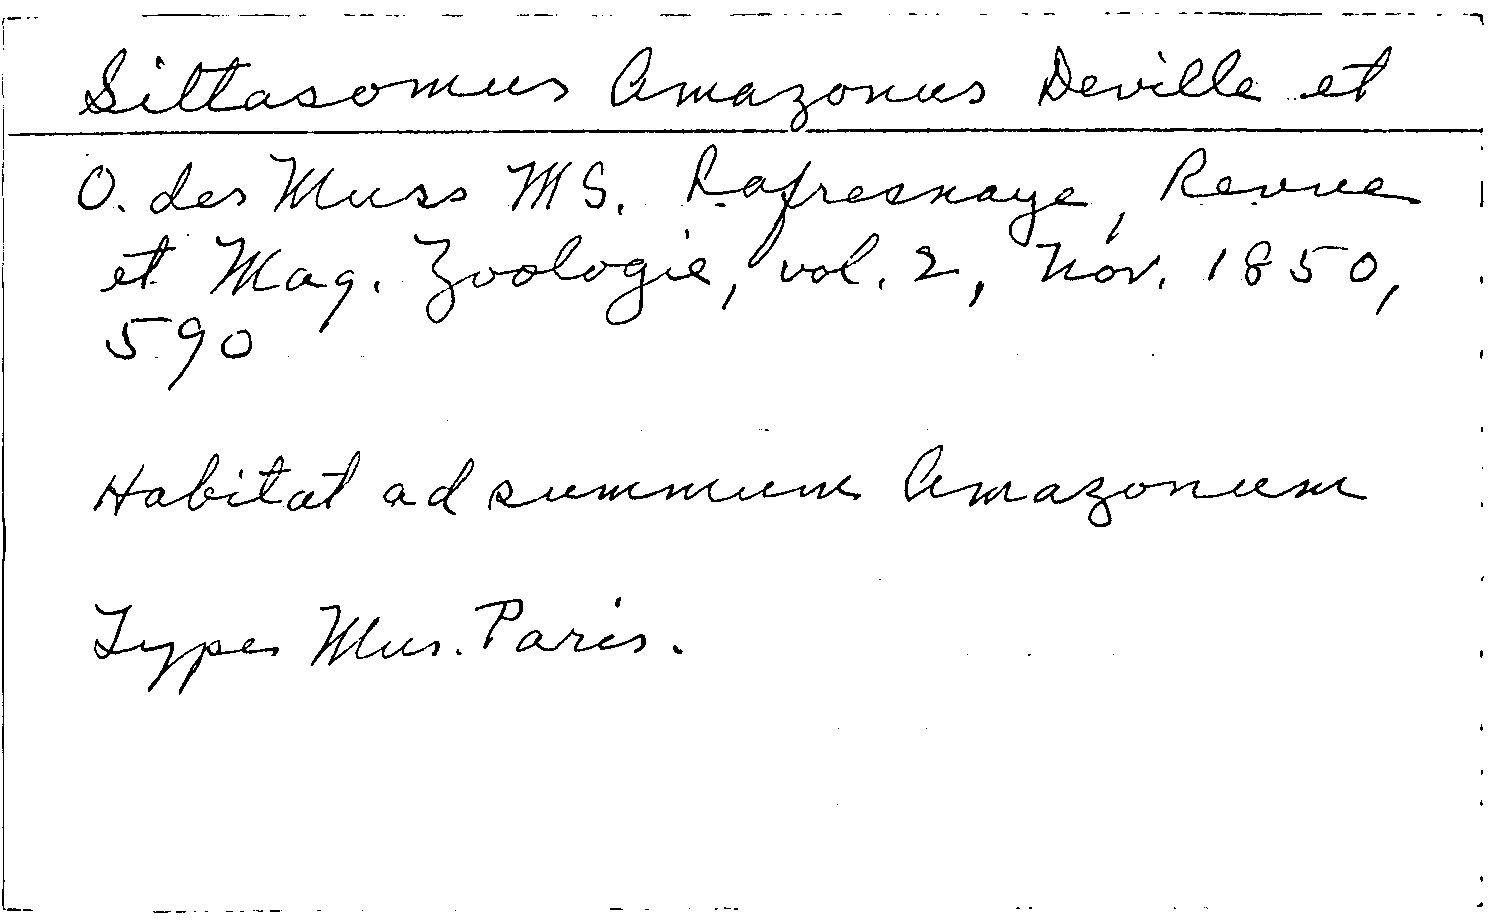 Sittasomus Amazonus Deville et
O. des Muss MS. Lafresnaye, Revue
et Mag. Zoologie, vol. 2, Nov. 1850,
590
Habitat ad summum Amazonum
Types Mus. Paris.